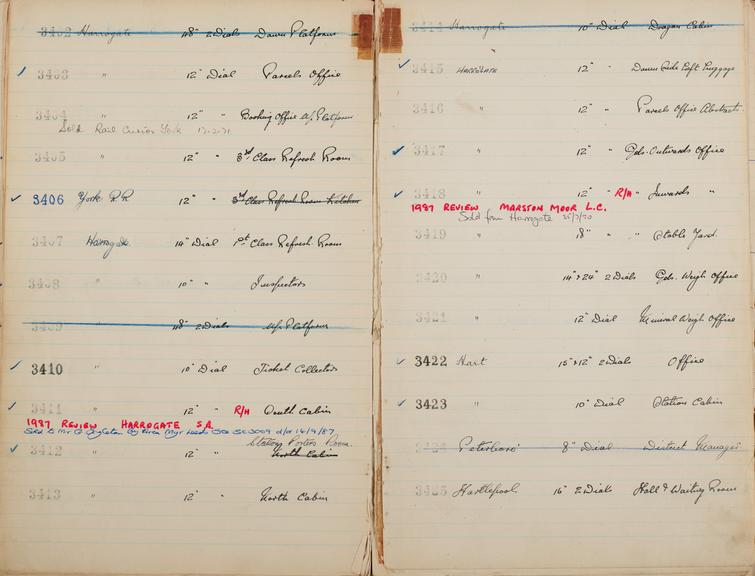 3402 Harrogate 48" 2 Dials Down Platform
3403 " 12" Dial Parcels Office
3404 " 12" " Booking Office Up Platform
Sold Rail Curios York 12.2.71
3405 " 12" " 3rd Class Refresh. Room
3406 York R.R 12" " 3rd Class Refresh Room Kitchen
3407 Harrogate 14" Dial 1st Class Refresh. Room
3408 " 10" " Inspectors
3409 " 48" 2 Dials Up Platform
3410 " 10" Dial Ticket Collectors
3411 " 12" " R/H South Cabin
1987 REVIEW HARROGATE S.A.
Sold to Mr by Area Mgr Leeds 14/9/87
Station Porters Room
3412 " 12" " North Cabin
3413 " 12" " North Cabin
3414 Harrogate 10" Dial Dragan Cabin
3415 HARROGATE 12" " Down Side Left Luggage
3416 " 12" " Parcels Office Abstracts
3417 " 12" " Gds. Outwards Office
3418 " 12" " R/H Inwards "
1987 REVIEW MARSTON MOOR L.C.
Sold from Harrogate
3419 " 18" " Stable Yard
3420 " 14" & 24" 2 Dials Gds. Weigh Office
3421 " 12" Dial Mineral Weigh Office
3422 Hart 15" & 12" 2 Dials Office
3423 " 10" Dial Station Cabin
3424 Peterboro' 8" Dial District Manager
3425 Hartlepool 16" 2 Dials Hall & Waiting Room